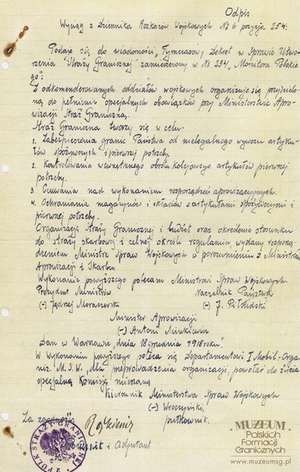 Odpis
Wyciąg z Dziennika Rozkazów Wojskowych № 6 pozycja 254.
Podaje się do wiadomości „Tymczasowy Dekret w Sprawie Utwo-
rzenia Straży Granicznej" zamieszczony w № 234 „Monitora Polskie-
go":
Z odkomenderowanych oddziałów wojskowych organizuje się przydzielo-
ną do pełnienia specjalnych obowiązków przy Ministerstwie Apro-
wizacji Straż Graniczną.
Straż Graniczna tworzy się w celu:
1. Zabezpieczenia granic Państwa od nielegalnego wywozu artyku-
łów spożywczych i pierwszej potrzeby.
2. Kontrolowania wewnętrznego obrotu kolejowego artykułów pierwszej
potrzeby.
3. Czuwania nad wykonaniem rozporządzeń aprowizacyjnych.
4. Ochraniania magazynów i składów z artykułami spożywczymi i
pierwszej potrzeby.
Organizację Straży Granicznej i budżet oraz określenie stosunku
do straży skarbowej i celnej określi regulamin wydany rozporzą-
dzeniem Ministra Spraw Wojskowych w porozumieniu z Ministrem
Aprowizacji i Skarbu.
Wykonanie powyższego polecam Ministrowi Spraw Wojskowych.
Prezydent Ministrów Naczelnik Państwa
(-) Jędrzej Moraczewski (-) J. Piłsudski
Minister Aprowizacji
(-) Antoni Minkiewicz
Dan w Warszawie, dnia grudnia 1918 roku.
W wykonaniu powyższego poleca się Departamentowi I Mobil.-Orga-
niz. M.S.W. dla przeprowadzenia organizacji powołać do życia
specjalną Komisję mieszaną.
Kierownik Ministerstwa Spraw Wojskowych
(-) Wroczyński,
pułkownik.
Za zgodność
i Adjutant
MUZEUM
Polskich
Formacji
Granicznych
www.muzeumsg.pl